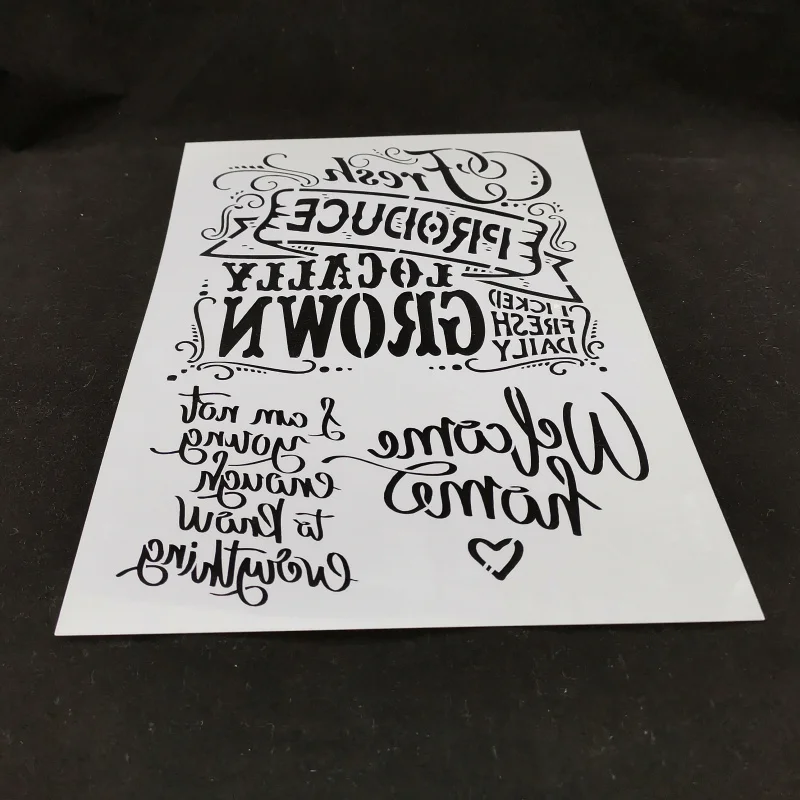 Fresh
PRODUCE
LOCALLY
GROWN
PICKED
FRESH
DAILY
Welcome
home
I am not
young
enough
to know
everything